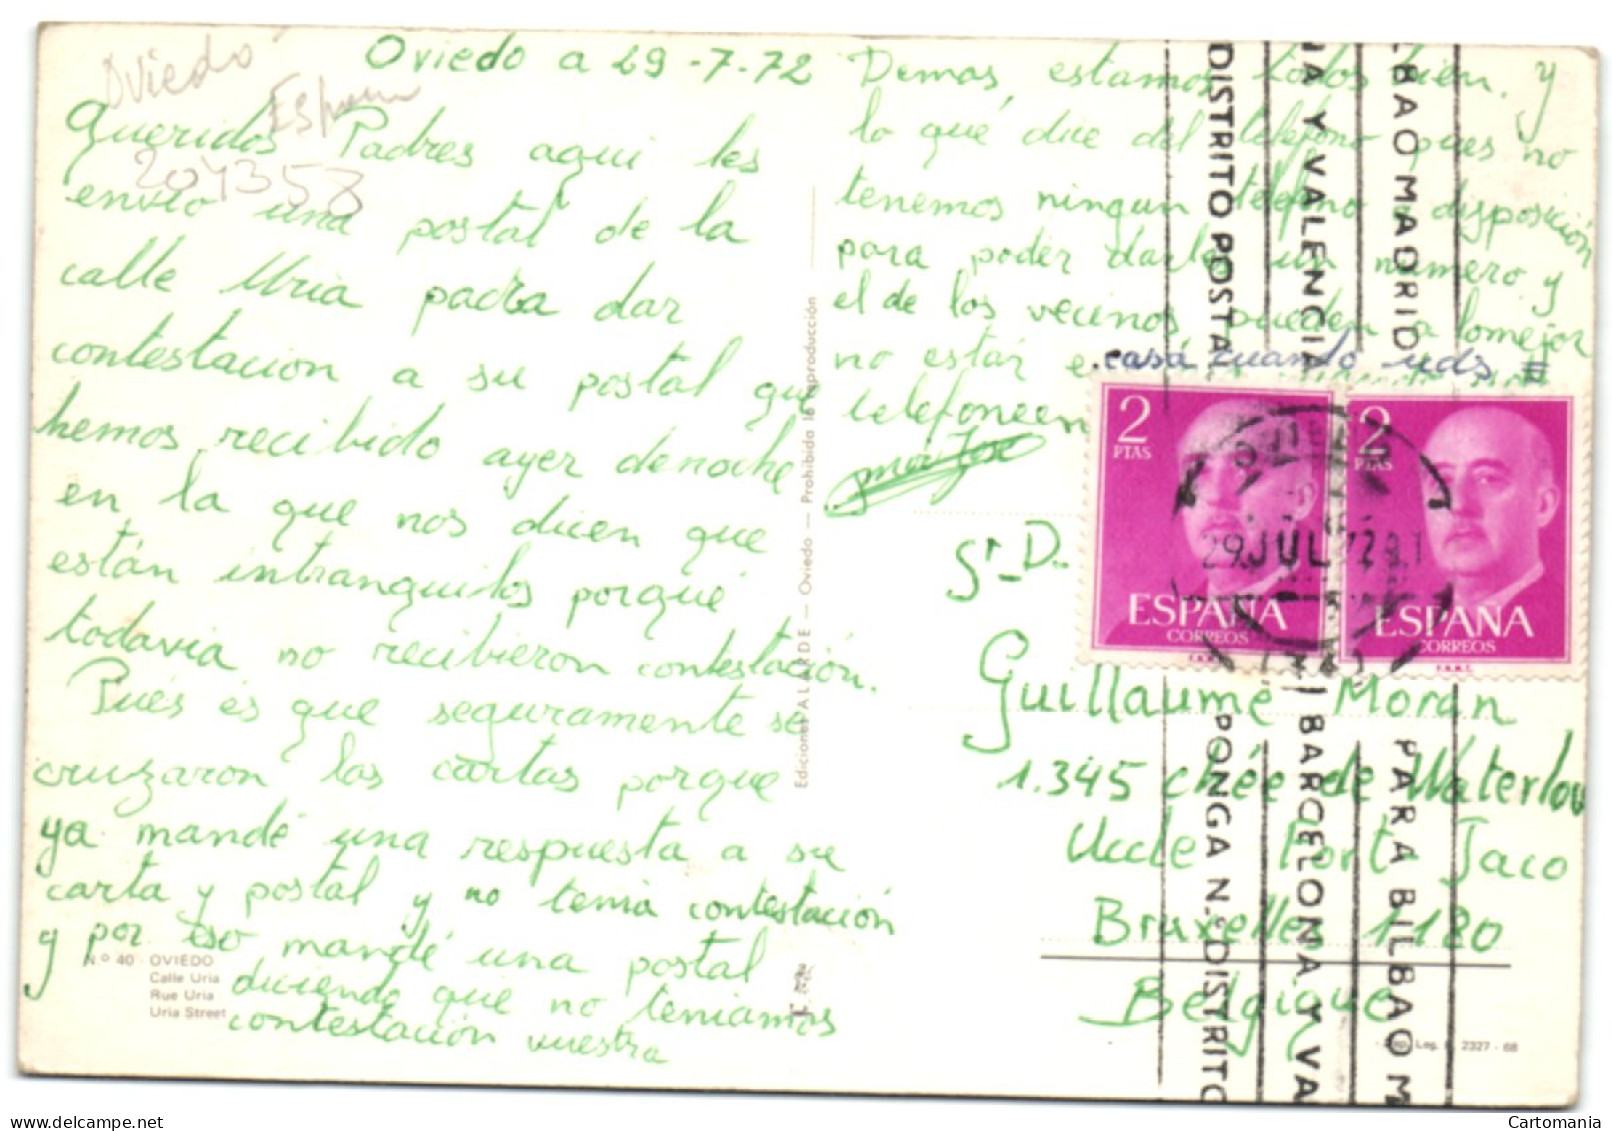 Oviedo
España
204358
Oviedo a 29-7-72
Queridos Padres aqui les
envio una postal de la
calle Uria padra dar
contestacion a su postal que
hemos recibido ayer denoche
en la que nos dicen que
están intranquilos porqué
todavia no recibieron contestación.
Pués és que seguramente se
cruzaron las cartas porque
ya mandé una respuesta a su
carta y postal y no tenia contestación
y por eso mandé una postal
diciendo que no teniamos
contestación vuestra
Nº 40 - OVIEDO
Calle Uría
Rue Uría
Uría Street
Ediciones ALARDE - Oviedo - Prohibida la reproducción
Demas, estamos todos bien, y
lo qué dice del telefono pues no
tenemos ningun telefono a disposición
para poder darle un numero y
el de los vecinos pueden a lomejor
no estár e
casa cuando uds #
telefoneen
Sr. D.
Guillaume Moran
1.345 chée de Waterloo
Uccle Fort Jaco
Bruxelles 1180
Belgique
2
PTAS
ESPAÑA
CORREOS
F.N.M.T.
2
PTAS
ESPAÑA
CORREOS
F.N.M.T.
OVIEDO
29 JUL 72
DISTRITO POSTA
IA Y VALENCIA
LBAO MADRID
PONGA N.º DISTRITO
BARCELONA Y VA
PARA BILBAO M
Dep. Leg. B. 2327 - 68
Cartomania